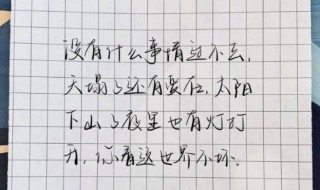 没有什么事情过不去,
天塌了还有爱在,太阳
下山了夜里也有灯打
开,你看这世界不坏.